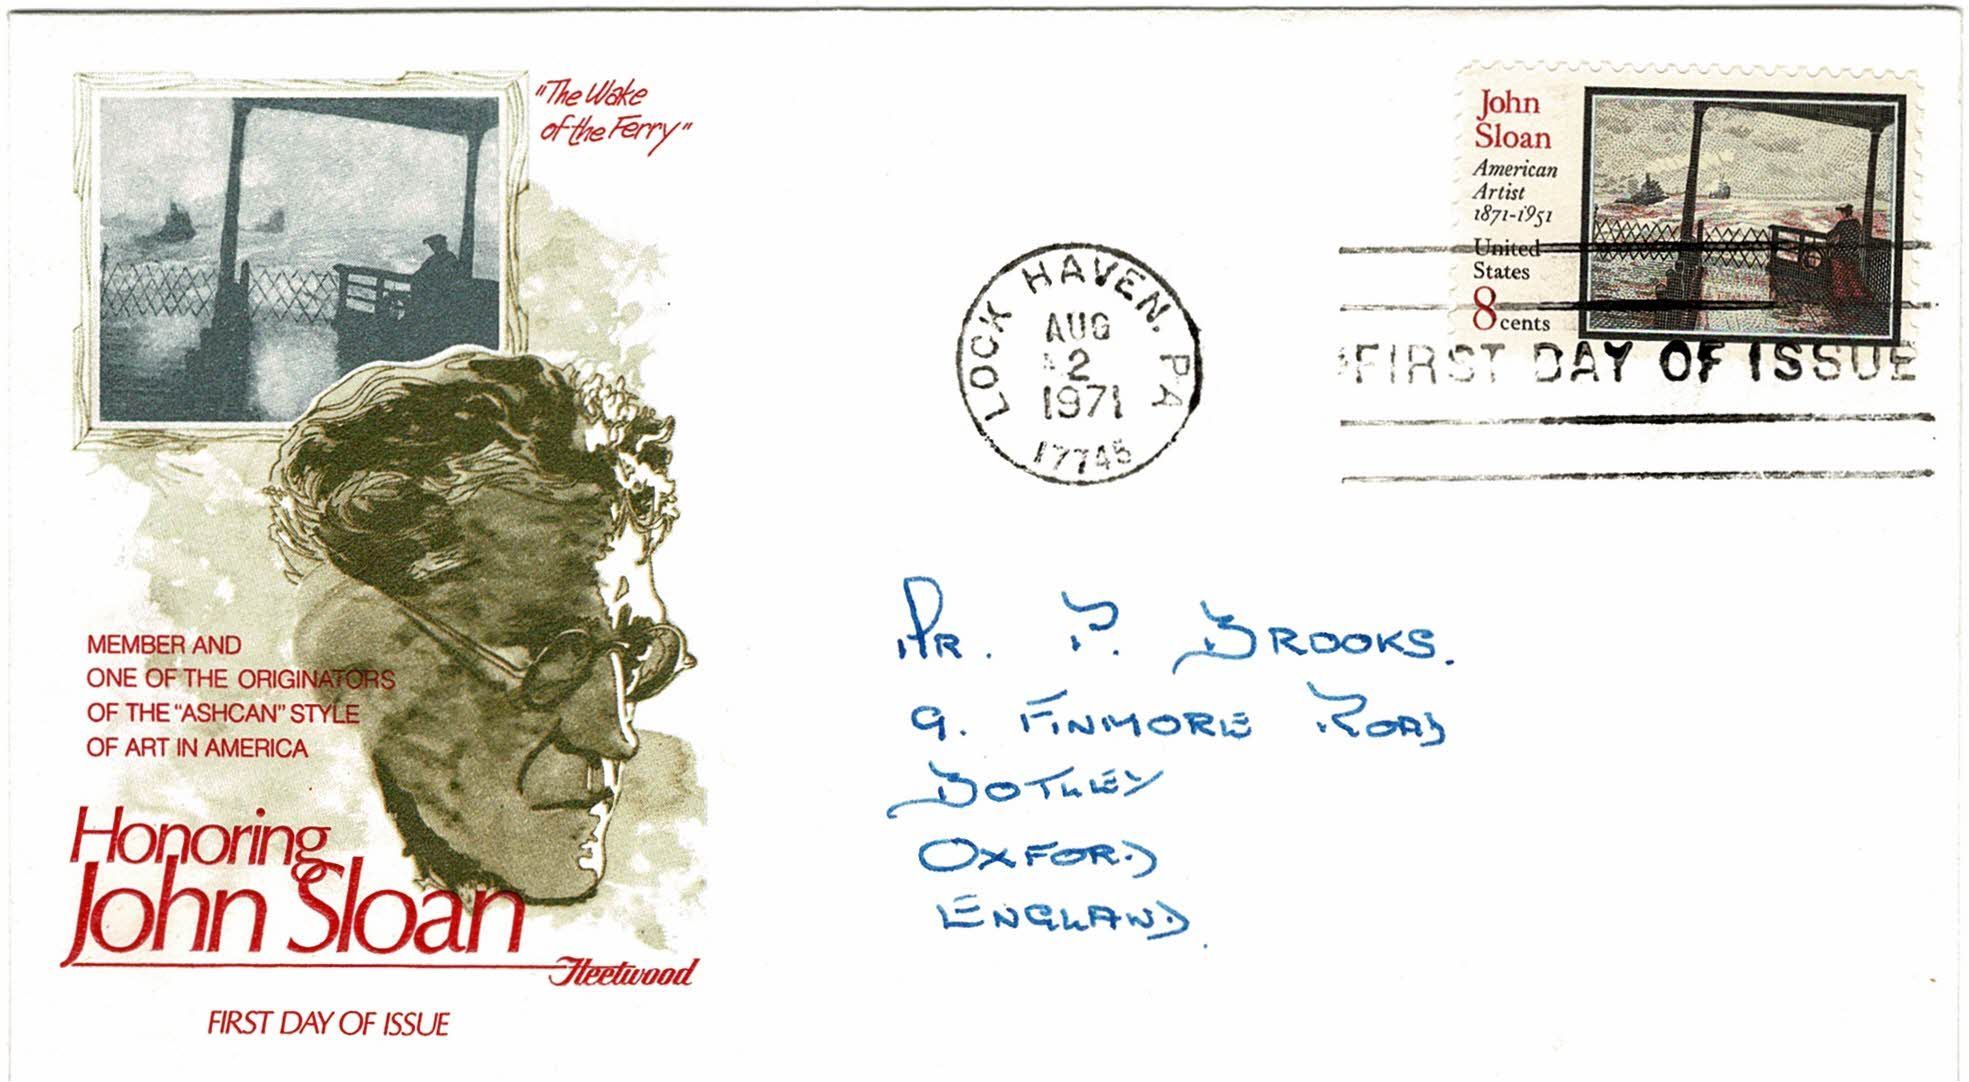 "The Wake
of the Ferry"
John
Sloan
American
Artist
1871-1951
United
States
8 cents
LOCK HAVEN, PA
AUG
2
1971
17745
FIRST DAY OF ISSUE
MR. P. BROOKS.
9. FINMORE ROAD
BOTLEY
OXFORD
ENGLAND.
MEMBER AND
ONE OF THE ORIGINATORS
OF THE "ASHCAN" STYLE
OF ART IN AMERICA
Honoring
John Sloan
Fleetwood
FIRST DAY OF ISSUE